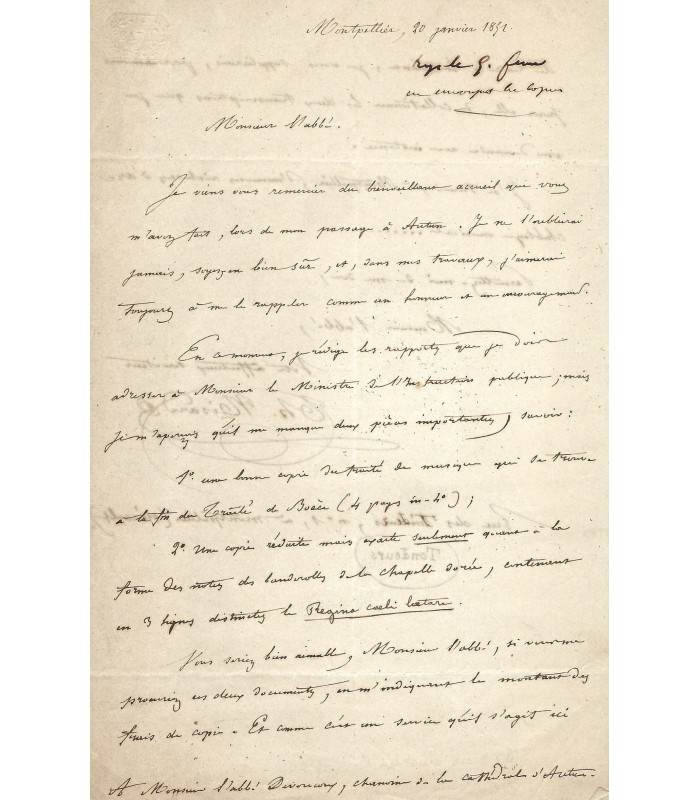 Montpellier, 20 janvier 1851.
en envoyant les copies
Monsieur l'abbé.
Je viens vous remercier du bienveillant accueil que vous
m'avez fait, lors de mon passage à Autun. Je ne l'oublierai
jamais, soyez-en bien sûr, et, dans mes travaux, j'aimerai
toujours à me le rappeler comme un honneur et un encouragement.
En ce moment, je rédige les rapports que je dois
adresser à Monsieur le Ministre de l'Instruction publique; mais
je m'aperçois qu'il me manque deux pièces importantes, savoir:
1º une bonne copie du traité de musique qui se trouve
à la fin du Traité de Boèce (4 pages in-4º);
2º Une copie réduite mais exacte seulement quant à la
forme des notes des banderolles de la chapelle dorée, contenant
en 3 lignes distinctes le Regina cœli lætare.
Vous seriez bien aimable, Monsieur l'abbé, si vous me
procuriez ces deux documents, en m'indiquant le montant des
frais de copie. Et comme c'est un service qu'il s'agit ici
A Monsieur l'abbé Devoucoux, chanoine de la cathédrale d'Autun.
Tondeurs